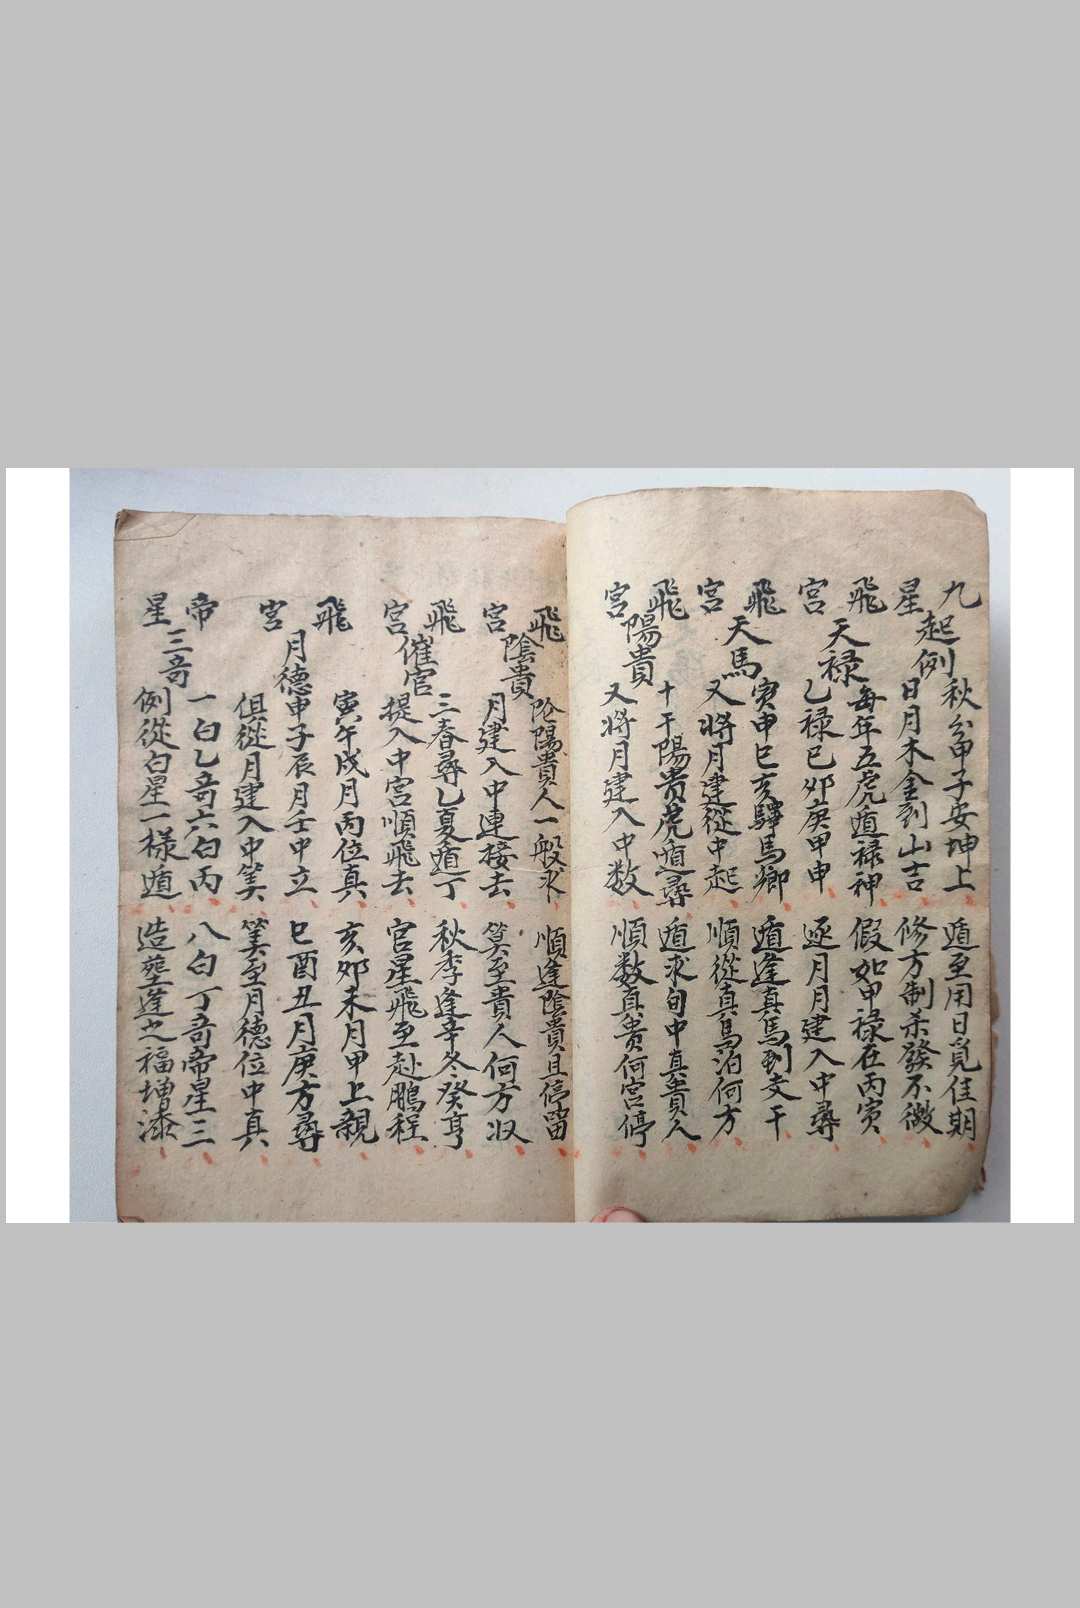 九星起例
秋分甲子安坤上 遁至用日覓佳期
日月木金到山吉 修方制杀發不微
飛宮天禄
每年五虎遁禄神 假如甲禄在丙寅
乙禄巳卯庚甲申 逐月月建入中尋
飛宮天馬
寅申巳亥驛馬鄉 遁逢真馬到支干
又將月建從中起 順從真馬泊何方
飛宮陽貴
十干陽贵虎遁尋 遁求旬中真貴人
又將月建入中数 順数真贵何宮停
飛宮陰貴
陰陽貴人一般求 順逢陰貴且停留
月建入中連接去 筭至貴人何方収
飛宮催官
三春尋乙夏遁丁 秋季逢辛冬癸亨
提入中宮順飛去 官星飛至赴鵬程
飛宮月德
寅午戍月丙位真 亥夘未月甲上親
申子辰月壬中立 巳酉丑月庚方尋
俱從月建入中筭 筭至月德位中真
帝星三竒
一白乙竒六白丙 八白丁竒帝星三
例從白星一樣遁 造塟逢之福增添